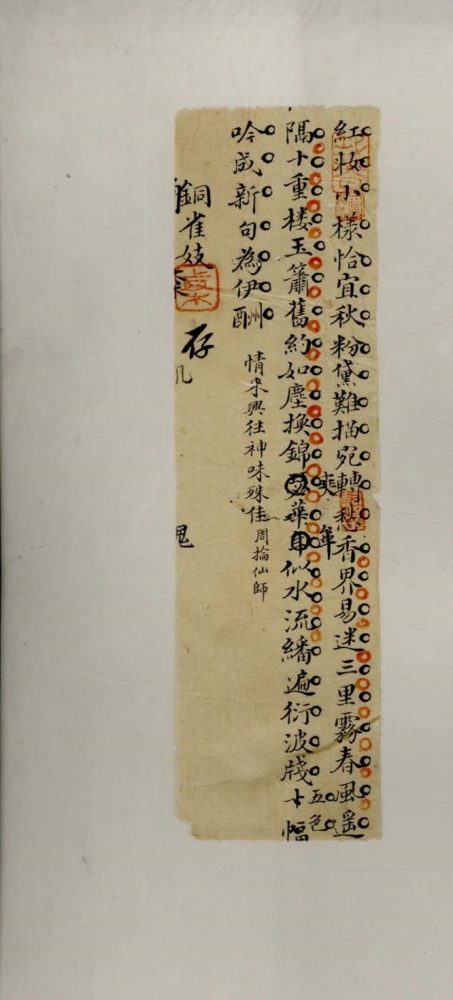 紅妝小樣恰宜秋粉黛難描宛轉愁香界易迷三里霧春風遥
隔十重楼玉簫舊約如塵換錦華似水流繙遍衍波牋十幅
年
五色
吟成新句為伊酬
情來興往神味殊佳周掄仙師
銅雀妓
存